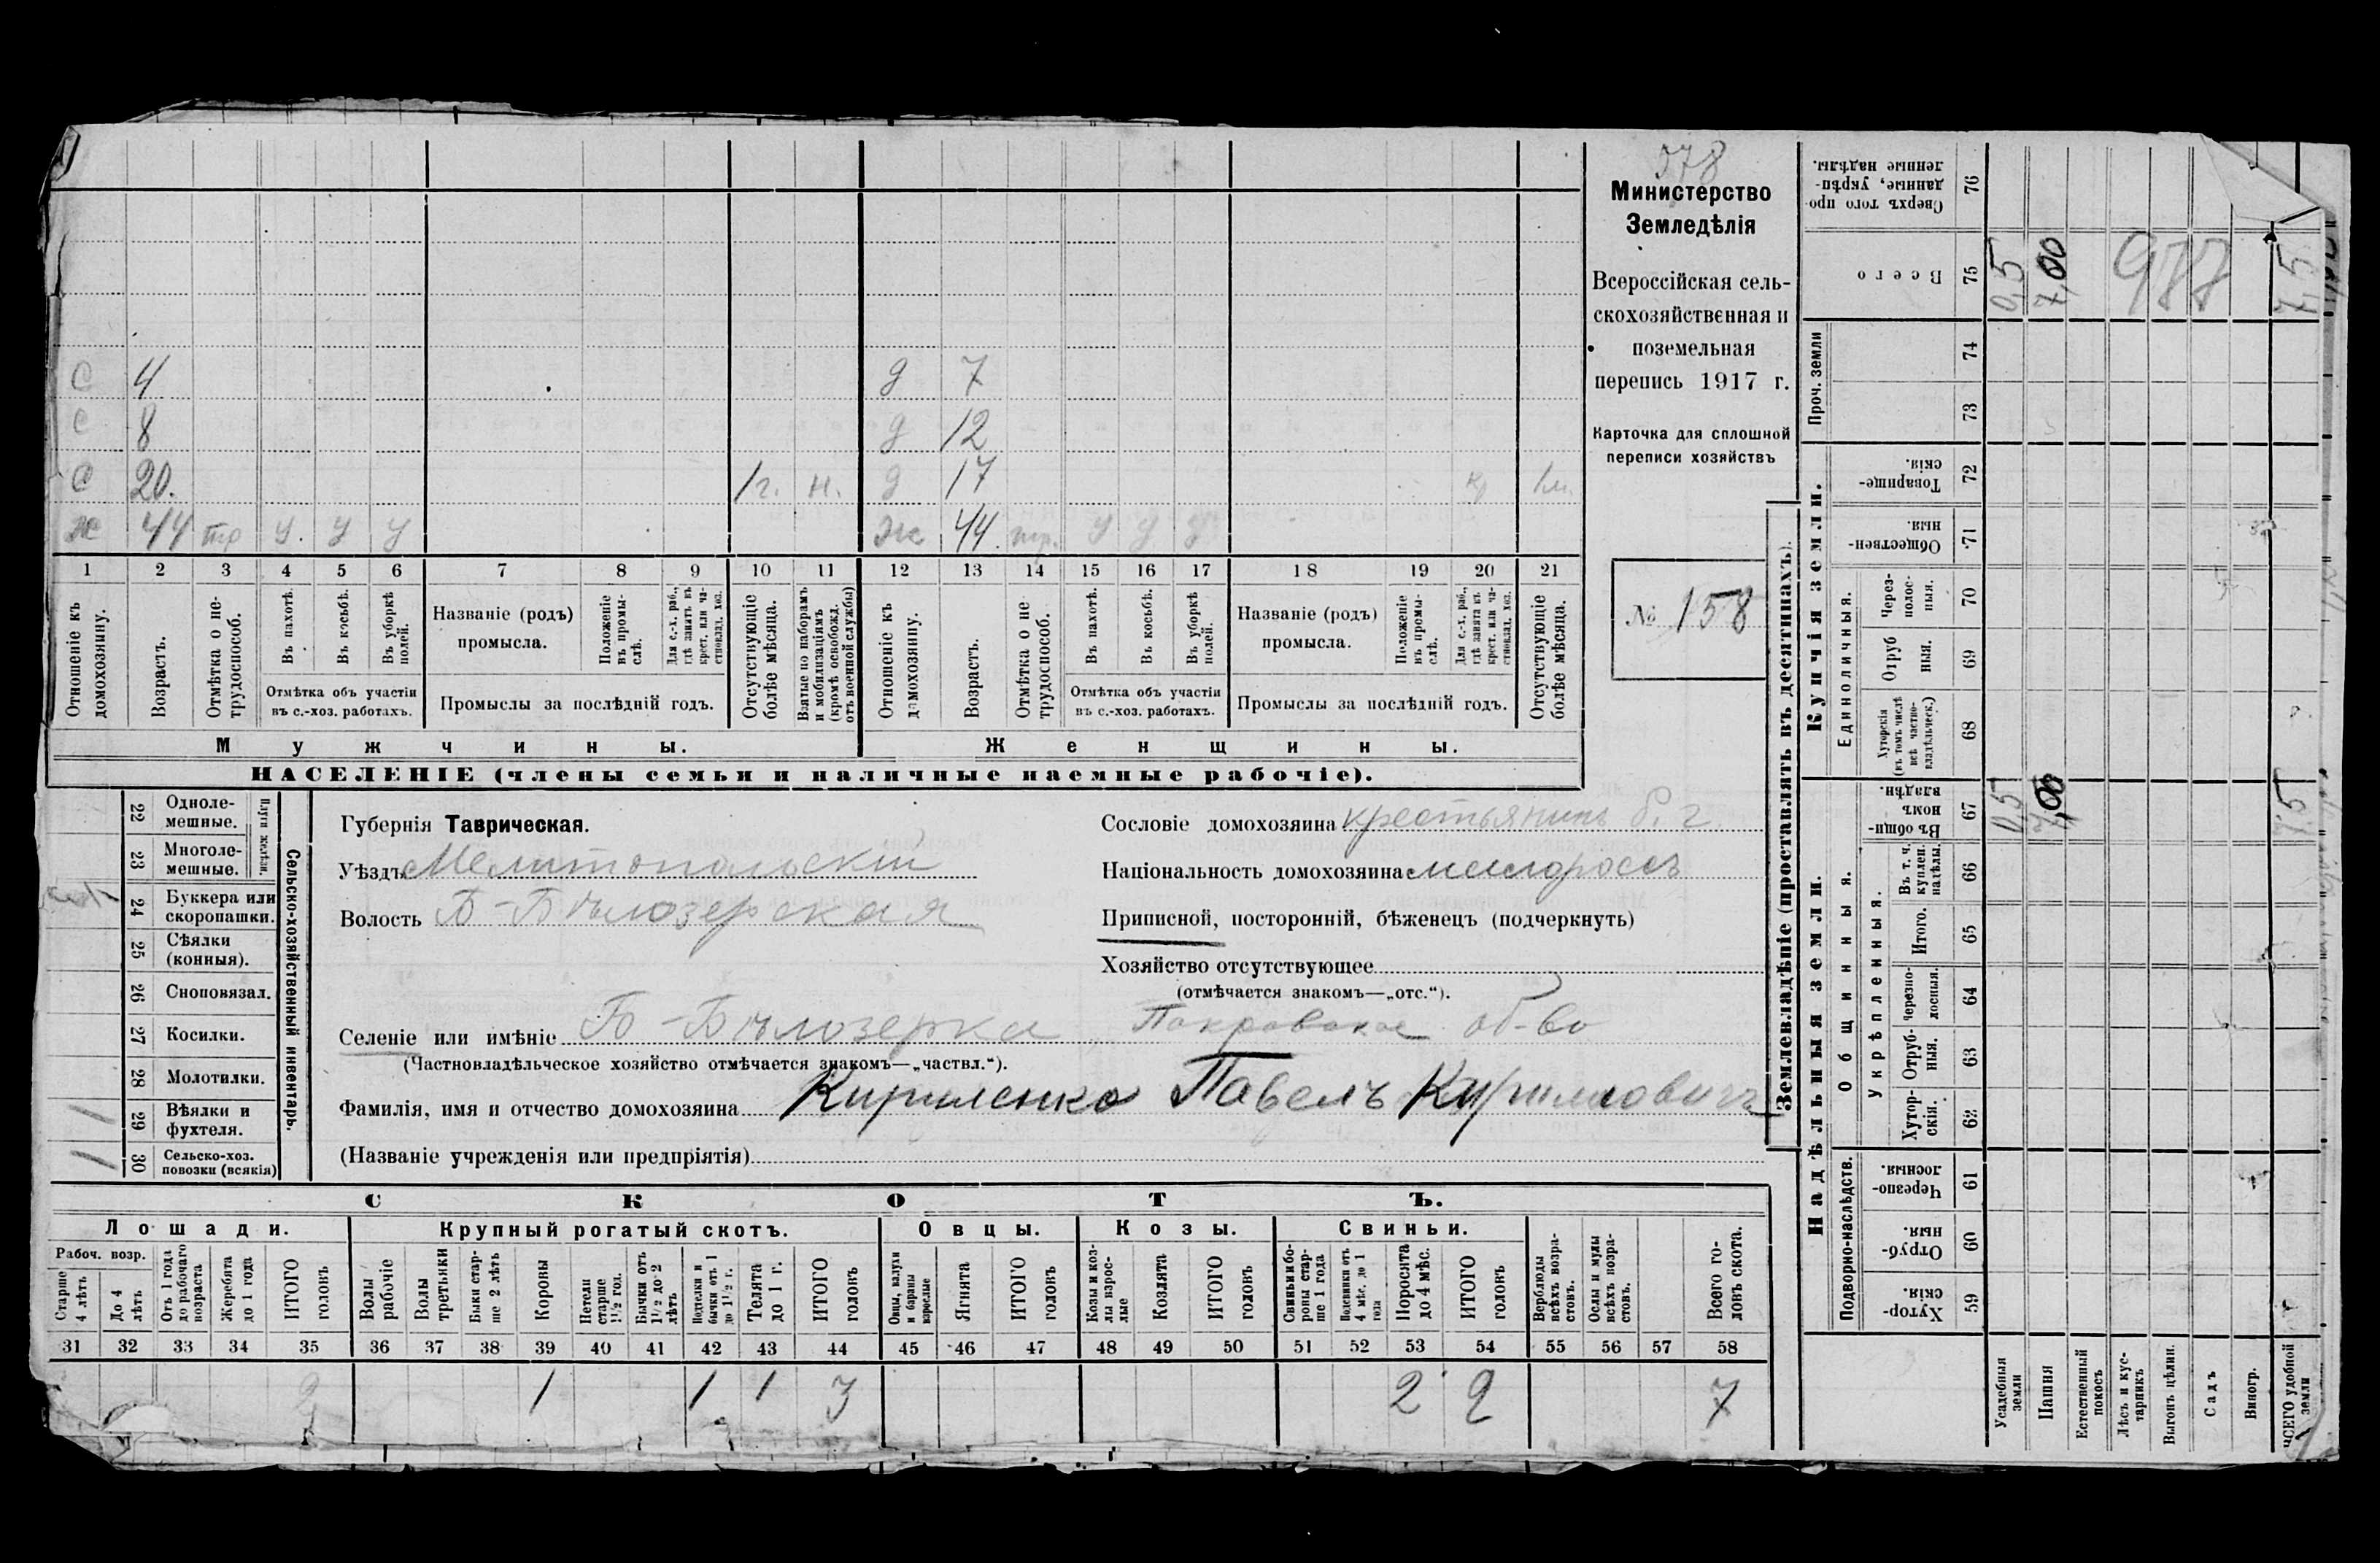 578
Министерство
Земледѣлія
Всероссійская сель-
скохозяйственная и
поземельная
перепись 1917 г.
Карточка для сплошной
переписи хозяйствъ
№ 158
с 4 д 7
с 8 д 12
с 20. 1 г. н. д 17
ж 44 тр у. у у ж 44 тр. у у у
1 2 3 4 5 6 7 8 9 10 11 12 13 14 15 16 17 18 19 20 21
Отношеніе къ домохозяину.
Возрастъ.
Отмѣтка о не-трудоспособ.
Въ пахотѣ.
Въ косьбѣ.
Въ уборкѣ полей.
Отмѣтка объ участіи
въ с.-хоз. работахъ.
Названіе (родъ)
промысла.
Положеніе въ промы-слѣ.
Для с.-х. раб., гдѣ занятъ въ крест. или ча-стновлад. хоз.
Промыслы за послѣдній годъ.
Отсутствующіе болѣе мѣсяца.
Взятые по наборамъ и мобилизаціямъ (кромѣ освобожд. отъ военной службы)
Отношеніе къ домохозяину.
Возрастъ.
Отмѣтка о не трудоспособ.
Въ пахотѣ.
Въ косьбѣ.
Въ уборкѣ полей.
Отмѣтка объ участіи
въ с.-хоз. работахъ.
Названіе (родъ)
промысла.
Положеніе въ промы-слѣ.
Для с.-х. раб., гдѣ занята въ крест. или ча-стновлад. хоз.
Промыслы за послѣдній годъ.
Отсутствующіе болѣе мѣсяца.
Мужчины.
Женщины.
НАСЕЛЕНІЕ (члены семьи и наличные наемные рабочіе).
22 Одноле-мешные.
23 Многоле-мешные.
Плуги желѣзн.
24 Буккера или скоропашки.
25 Сѣялки (конныя).
26 Сноповязал.
27 Косилки.
28 Молотилки.
1 29 Вѣялки и фухтеля.
1 30 Сельско-хоз. повозки (всякія)
Сельско-хозяйственный инвентарь.
Губернія Таврическая.
Уѣздъ Мелитопольскій
Волость Б-Бѣлозерская
Сословіе домохозяина крестьянинъ б. г.
Національность домохозяина малороссъ
Приписной, посторонній, бѣженецъ (подчеркнуть)
Хозяйство отсутствующее
(отмѣчается знакомъ—„отс.“).
Селеніе или имѣніе Б-Бѣлозерка Покровское об-во
(Частновладѣльческое хозяйство отмѣчается знакомъ—„частвл.“).
Фамилія, имя и отчество домохозяина Кириленко Павелъ Кириловичъ
(Названіе учрежденія или предпріятія)
СКОТЪ.
Лошади. Крупный рогатый скотъ. Овцы. Козы. Свиньи.
Рабоч. возр.
Старше 4 лѣтъ
До 4 лѣтъ
Отъ 1 года до рабочаго возраста
Жеребята до 1 года
ИТОГО головъ
Волы рабочіе
Волы третьяки
Быки стар-ше 2 лѣтъ
Коровы
Нетели старше 1½ год.
Бычки отъ 1½ до 2 лѣтъ
Подтелки и бычки отъ 1 до 1½ г.
Телята до 1 г.
ИТОГО головъ
Овцы, валухи и бараны взрослые
Ягнята
ИТОГО головъ
Козы и коз-лы взрос-лые
Козлята
ИТОГО головъ
Свиньи и бо-ровы стар-ше 1 года
Подсвинки отъ 4 мѣс. до 1 года
Поросята до 4 мѣс.
ИТОГО головъ
Верблюды всѣхъ возра-стовъ.
Ослы и мулы всѣхъ возра-стовъ.
Всего го-ловъ скота.
31 32 33 34 35 36 37 38 39 40 41 42 43 44 45 46 47 48 49 50 51 52 53 54 55 56 57 58
2 1 1 1 3 2 2 7
Землевладѣніе (проставлять въ десятинахъ).
Надѣльныя земли.
Купчія земли.
Проч. земли
Подворно-наслѣдств.
Общинныя.
Укрѣпленныя.
Единоличныя.
Сверхъ того про-данные, укрѣп-ленные надѣлы. 76
Всего 75 0,5 7,00 7,5
977
74
73
Товарище-скія. 72
Обществен-ныя. 71
Через-полос-ныя. 70
Отруб ныя. 69
Хуторскія (въ томъ числѣ всѣ частно-владѣльческ.) 68
Въ общин-номъ владѣн. 67 0,5 7,00 7,5
Въ т. ч. куплен. надѣлы. 66
Итого. 65
Черезпо-лосныя. 64
Отруб-ныя. 63
Хутор-скія. 62
Черезпо-лосныя. 61
Отруб-ныя. 60
Хутор-скія. 59
Усадебныя земли
Пашня
Естественный покосъ
Лѣсъ и кус-тарникъ
Выгонъ цѣлин.
Садъ
Виногр.
ВСЕГО удобной земли